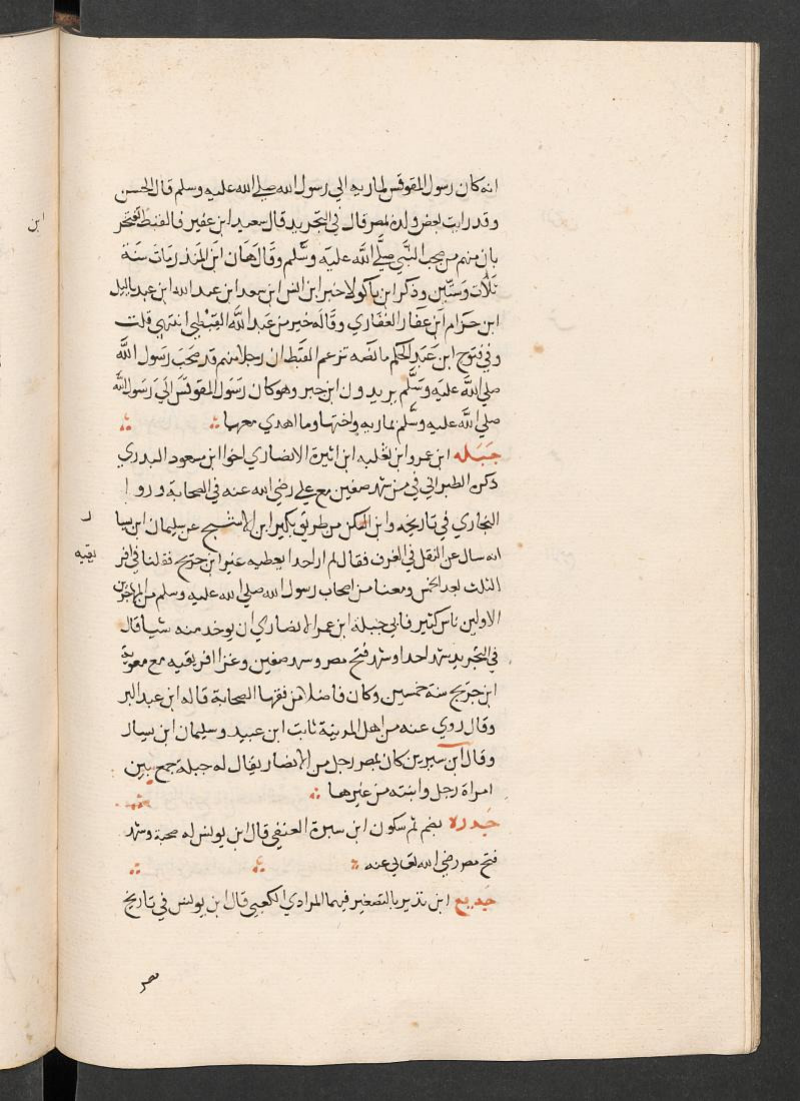 انه كان رسول المقوقس بمارية الي رسول الله صلي الله عليه وسلم قال الحسن
وقد رايت بعض ولده بمصر قال في التجريد قال سعيد ابن عفير فالقبط تفتخر
بان منهم من صحب النبي صلي الله عليه وسلم وقال هان ابن المنذر مات سنة
ثلاث وستين وذكر ابن ماكولا جبر ابن انس ابن سعد ابن عبد الله ابن عبد ياليل
ابن حرام ابن غفار الغفاري وقال خبر من عبد الله القبطي انتهي قلت
وفي فتوح ابن عبد الحكم ما نصه تزعم القبط ان رجلا منهم قد صحب رسول الله
صلي الله عليه وسلم يريدون ابن جبر وهو كان رسول المقوقس الي رسول الله
صلي الله عليه وسلم بمارية واختها وما اهدي معهما
جبله ابن عمرو ابن ثعلبه ابن اثيرة الانصاري اخوا ابن سعود البدري
ذكره الطبراني في من شهد صفين مع علي رضي الله عنه في الصحابة وروا
البخاري في تاريخه وابن السكن من طريق بكير ابن الاشج عن سليمان ابن يسا
ر
انه سال عن النفل في الغزو فقال لم ار احدا يعطيه غير ابن خريج نفلنا في افر
يقيه
الثلث بعد الخمس ومعنا من اصحاب رسول الله صلي الله عليه وسلم من المهاجرين
الاولين ناس كثير فابي جبلة ابن عمر الانصاري ان يوخد منه شيا قال
في التجريد شهد احدا وشهد فتح مصر وسهد صفين وغزا افريقيه مع معوية
ابن خريج سنة خمسين وكان فاضلا من فقها الصحابة قاله ابن عبد البر
وقال روي عنه من اهل المدينة ثابت ابن عبيد وسليمان ابن يسار
وقال ابن سيرين كان بمصر رجل من الانصار يقال له جبلة جمع بين
امراة رجل وابنته من غيرها
جدره بضم ثم سكون ابن سبرة العتقي قال ابن يونس له صحبة وشهد
فتح مصر رضي الله تعالي عنه
جديع ابن نذير بالتصغير فيهما المرادي الكعبي قال ابن يونس في تاريخ
مصر
ابن